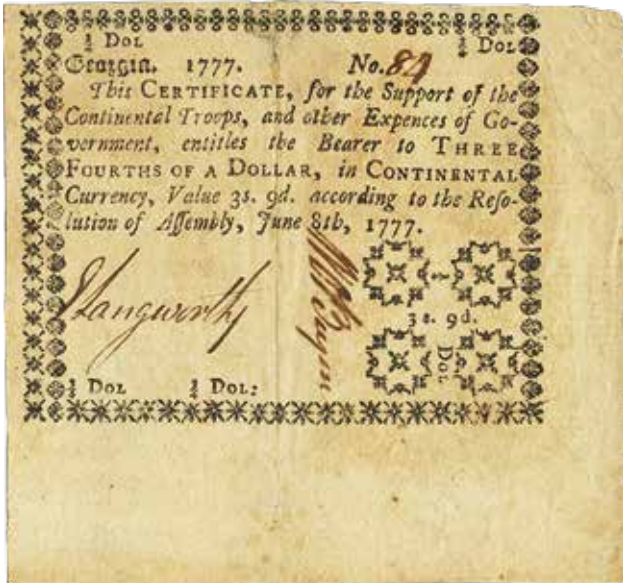 ¾ Dol ¾ Dol
Georgia. 1777. No. 84
This CERTIFICATE, for the Support of the
Continental Troops, and other Expences of Go-
vernment, entitles the Bearer to THREE
FOURTHS OF A DOLLAR, in CONTINENTAL
Currency, Value 3s. 9d. according to the Reſo-
lution of Aſſembly, June 8th, 1777.
Langworthy
3s. 9d.
Dol
¾ Dol ¾ Dol: